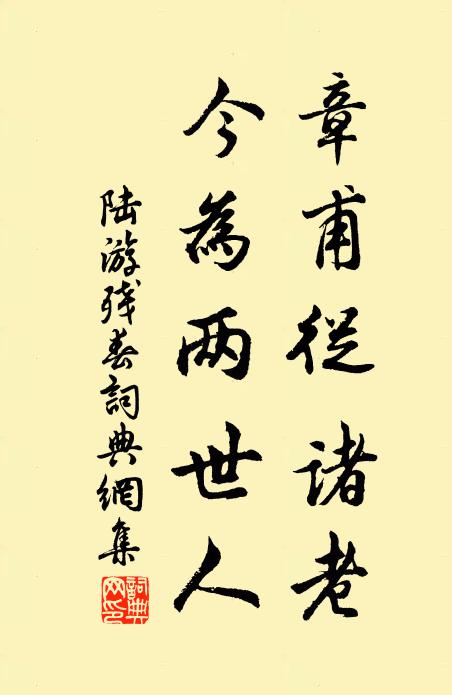 章甫從諸老
今為兩世人
陸游残春詞典網集
詞典网印